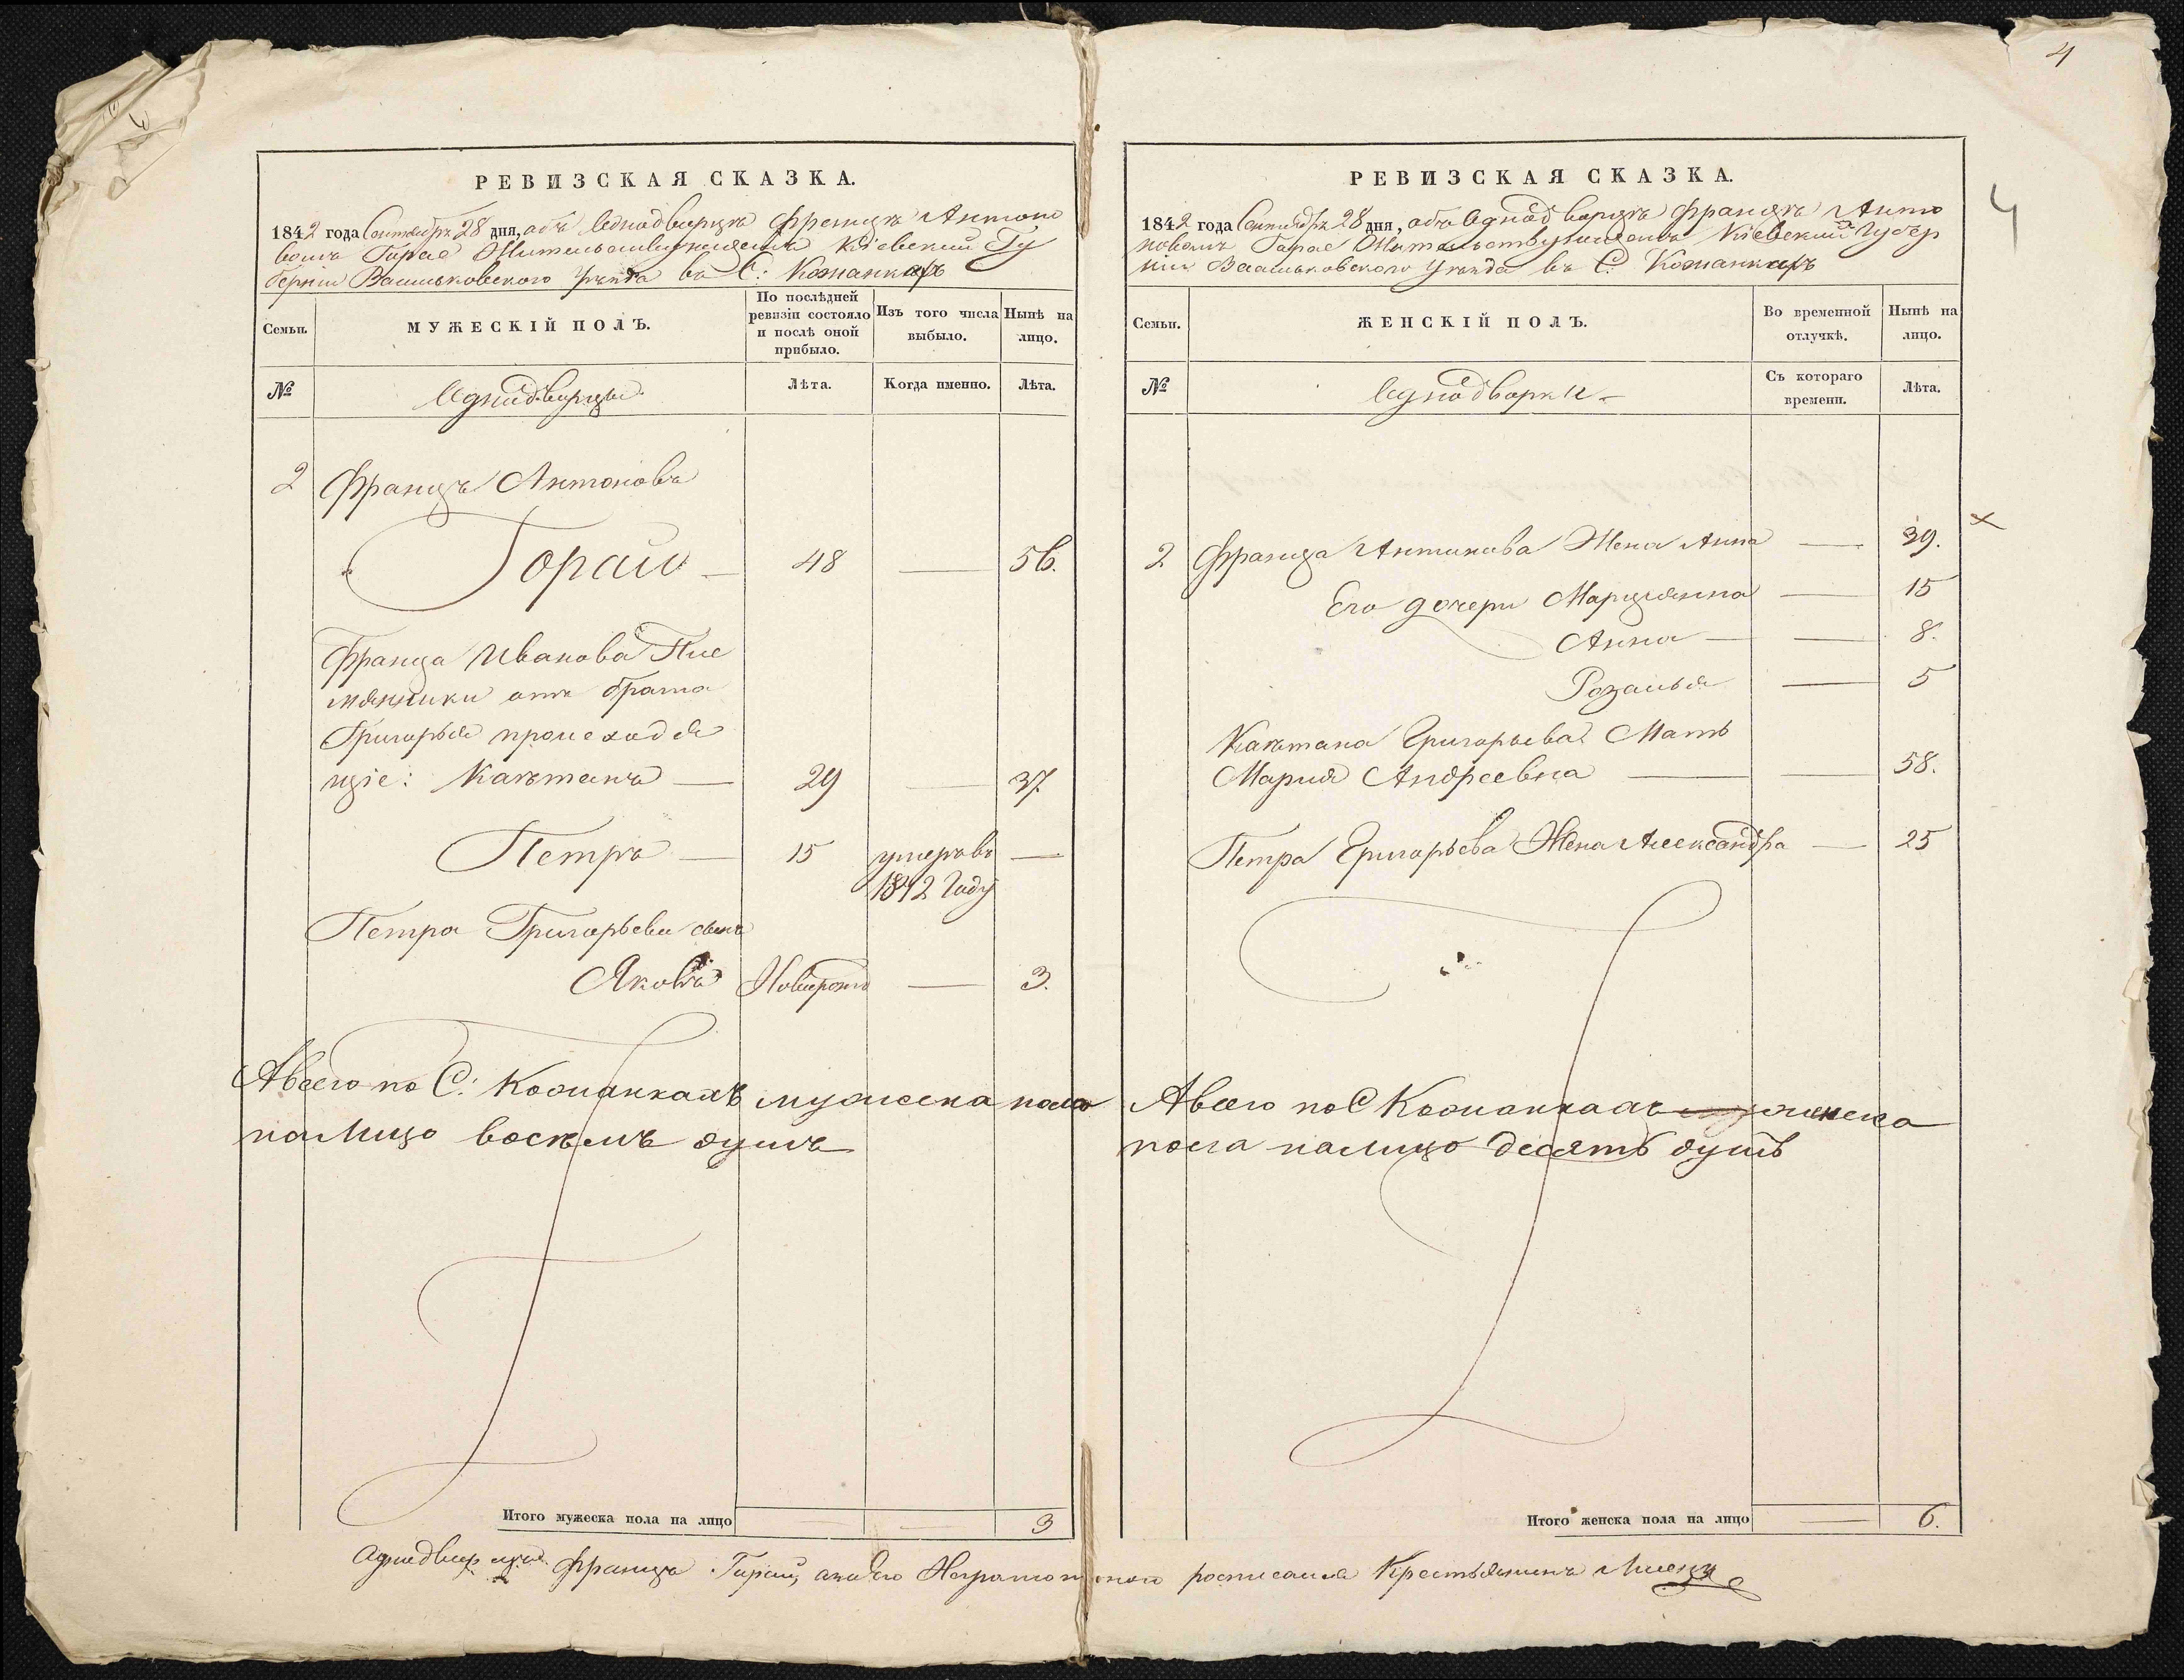 4
4
РЕВИЗСКАЯ СКАЗКА.
1842 года Сентября 28 дня, объ Однодворцѣ Францѣ Антоно
вомъ Горае Жительствующемъ Кіевской Гу
берніи Васильковского Уѣзда въ С: Кожанкахъ
Семьи.
МУЖЕСКІЙ ПОЛЪ.
По послѣдней ревизіи состояло и послѣ оной прибыло.
Изъ того числа выбыло.
Нынѣ на лицо.
№
Однодворцы
Лѣта.
Когда именно.
Лѣта.
2 Францъ Антоновъ
Горай — 48 — 56.
Франца Иванова Пле
мянники отъ брата
Григорья происходя
щіе: Каѣтанъ — 29 — 37.
Петръ — 15 умеръ въ —
1842 Году
Петра Григорьева сынъ
Яковъ Новорож — 3.
А всего по С: Кожанкахъ мужеска пола
на лицо восѣмъ душъ
Итого мужеска пола на лицо — — 3
РЕВИЗСКАЯ СКАЗКА.
1842 года Сентября 28 дня, объ Однодворцѣ Францѣ Анто
новомъ Горае Жительствующемъ Кіевской Губер
ніи Васильковского Уѣзда въ С. Кожанкахъ
Семьи.
ЖЕНСКІЙ ПОЛЪ.
Во временной отлучкѣ.
Нынѣ на лицо.
№
Однодворки —
Съ котораго времени.
Лѣта.
2 Франца Антонова Жена Анна — 39. ×
Его дочери Марціянна — 15
Анна — — 8.
Розалья — 5
Каѣтана Григорьева Мать
Мария Андреевна — — 58.
Петра Григорьева Жена Александра — 25
А всего по С Кожанкахъ женска
пола на лицо десять душъ
Итого женска пола на лицо — 6.
Францъ Горай, а за его Неграмотного росписался Крестьянинъ